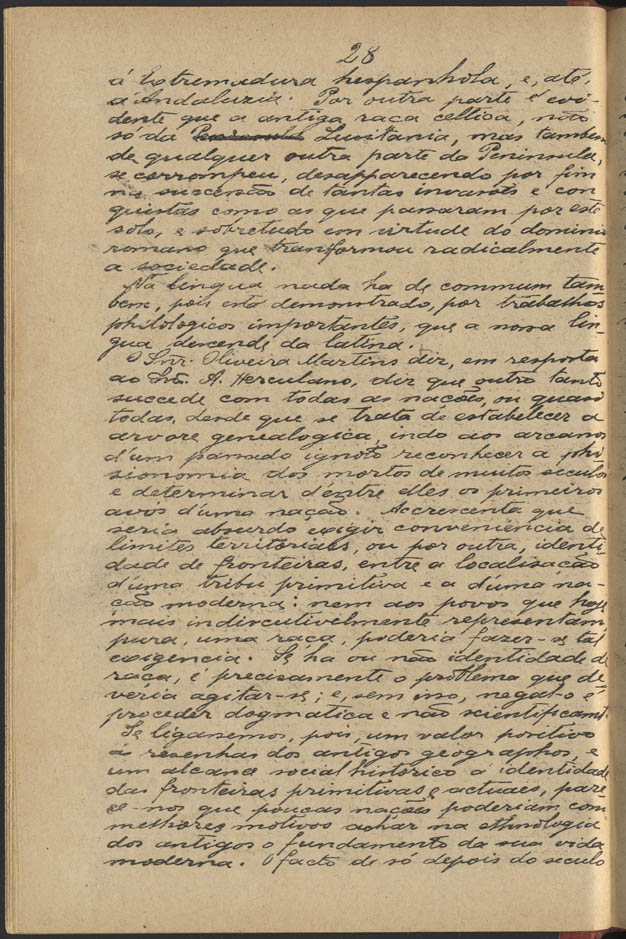 28
á Extremadura hespanhola, e, até,
á Andaluzia. Por outra parte é evi-
dente que a antiga raca celtica, não
só da Lusitania, mas tambem
de qualquer outra parte da Peninsula,
se corrompeu, desapparecendo por fim
na successão de tantas invasões e con
quistas como as que passaram por este
solo, e sobretudo em virtude do dominio
romano que transformou radicalmente
a sociedade.
Na lingua nada ha de commum tam
bem, pois está demonstrado, por trabalhos
philologicos importantes, que a nossa lin
gua descende da latina.
O Snr. Oliveira Martins diz, em resposta
ao Snr. A. Herculano, diz que outro tanto
succede com todas as nações, ou quasi
todas, desde que se trata de estabelecer a
arvore genealogica, indo aos arcanos
d'um passado ignoto reconhecer a phi
sionomia dos mortos de muitos seculos
e determinar d'entre elles os primeiros
avós d'uma nação. Accrescenta que
seria absurdo exigir conveniencia de
limites territoriaes, ou por outra, identi
dade de fronteiras, entre a localisação
d'uma tribu primitiva e a d'uma na-
ção moderna: nem aos povos que hoje
mais indiscutivelmente representam
pura, uma raça, poderia fazer-se tal
exigencia. Se ha ou não identidade de
raça, é precisamente o problema que de
veria agitar-se; e, sem isso, negal-o é
proceder dogmatica e não scientificamte.
Se ligassemos, pois, um valor positivo
ás resenhas dos antigos geographos, e
um alcance social historico á identidade
das fronteiras primitivas e actuaes, pare
ce-nos que poucas nações poderiam com
melhores motivos achar na ethnologia
dos antigos o fundamento da sua vida
moderna. O facto de só depois do seculo